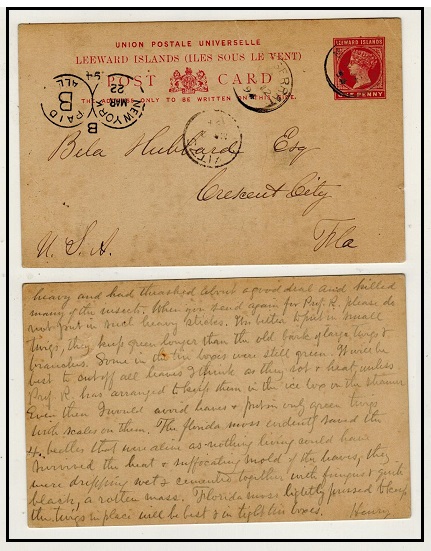 UNION POSTALE UNIVERSELLE
LEEWARD ISLANDS (ILES SOUS LE VENT)
POST CARD
THE ADDRESS ONLY TO BE WRITTEN ON THIS SIDE.
LEEWARD ISLANDS
ONE PENNY
NEW YORK
MAR
22
94
B
PAID
B
ALL
Bela Hubbard Esq
Crescent City
Fla
U.S.A.
heavy and had thrashed about a good deal and killed
many of the insects. When you send again for Prof. R. please do
not put in such heavy sticks. Its better to put in small
twigs, they keep green longer than the old bark of large twigs &
branches. Some in the tin boxes were still green. It will be
best to cut off all leaves I think as they rot & heat, unless
Prof R. has arranged to keep them in the ice box on the steamer
Even then I would avoid leaves & put in only green twigs
with scales on them. The florida moss evidently saved the
4 beetles that were alive as nothing living could have
survived the heat & suffocating mold of the leaves, they
were dripping wet & cemented together with fungus &
black, a rotten mass. Florida moss lightly pressed to keep
the twigs in place will be best & in tight tin boxes. Henry